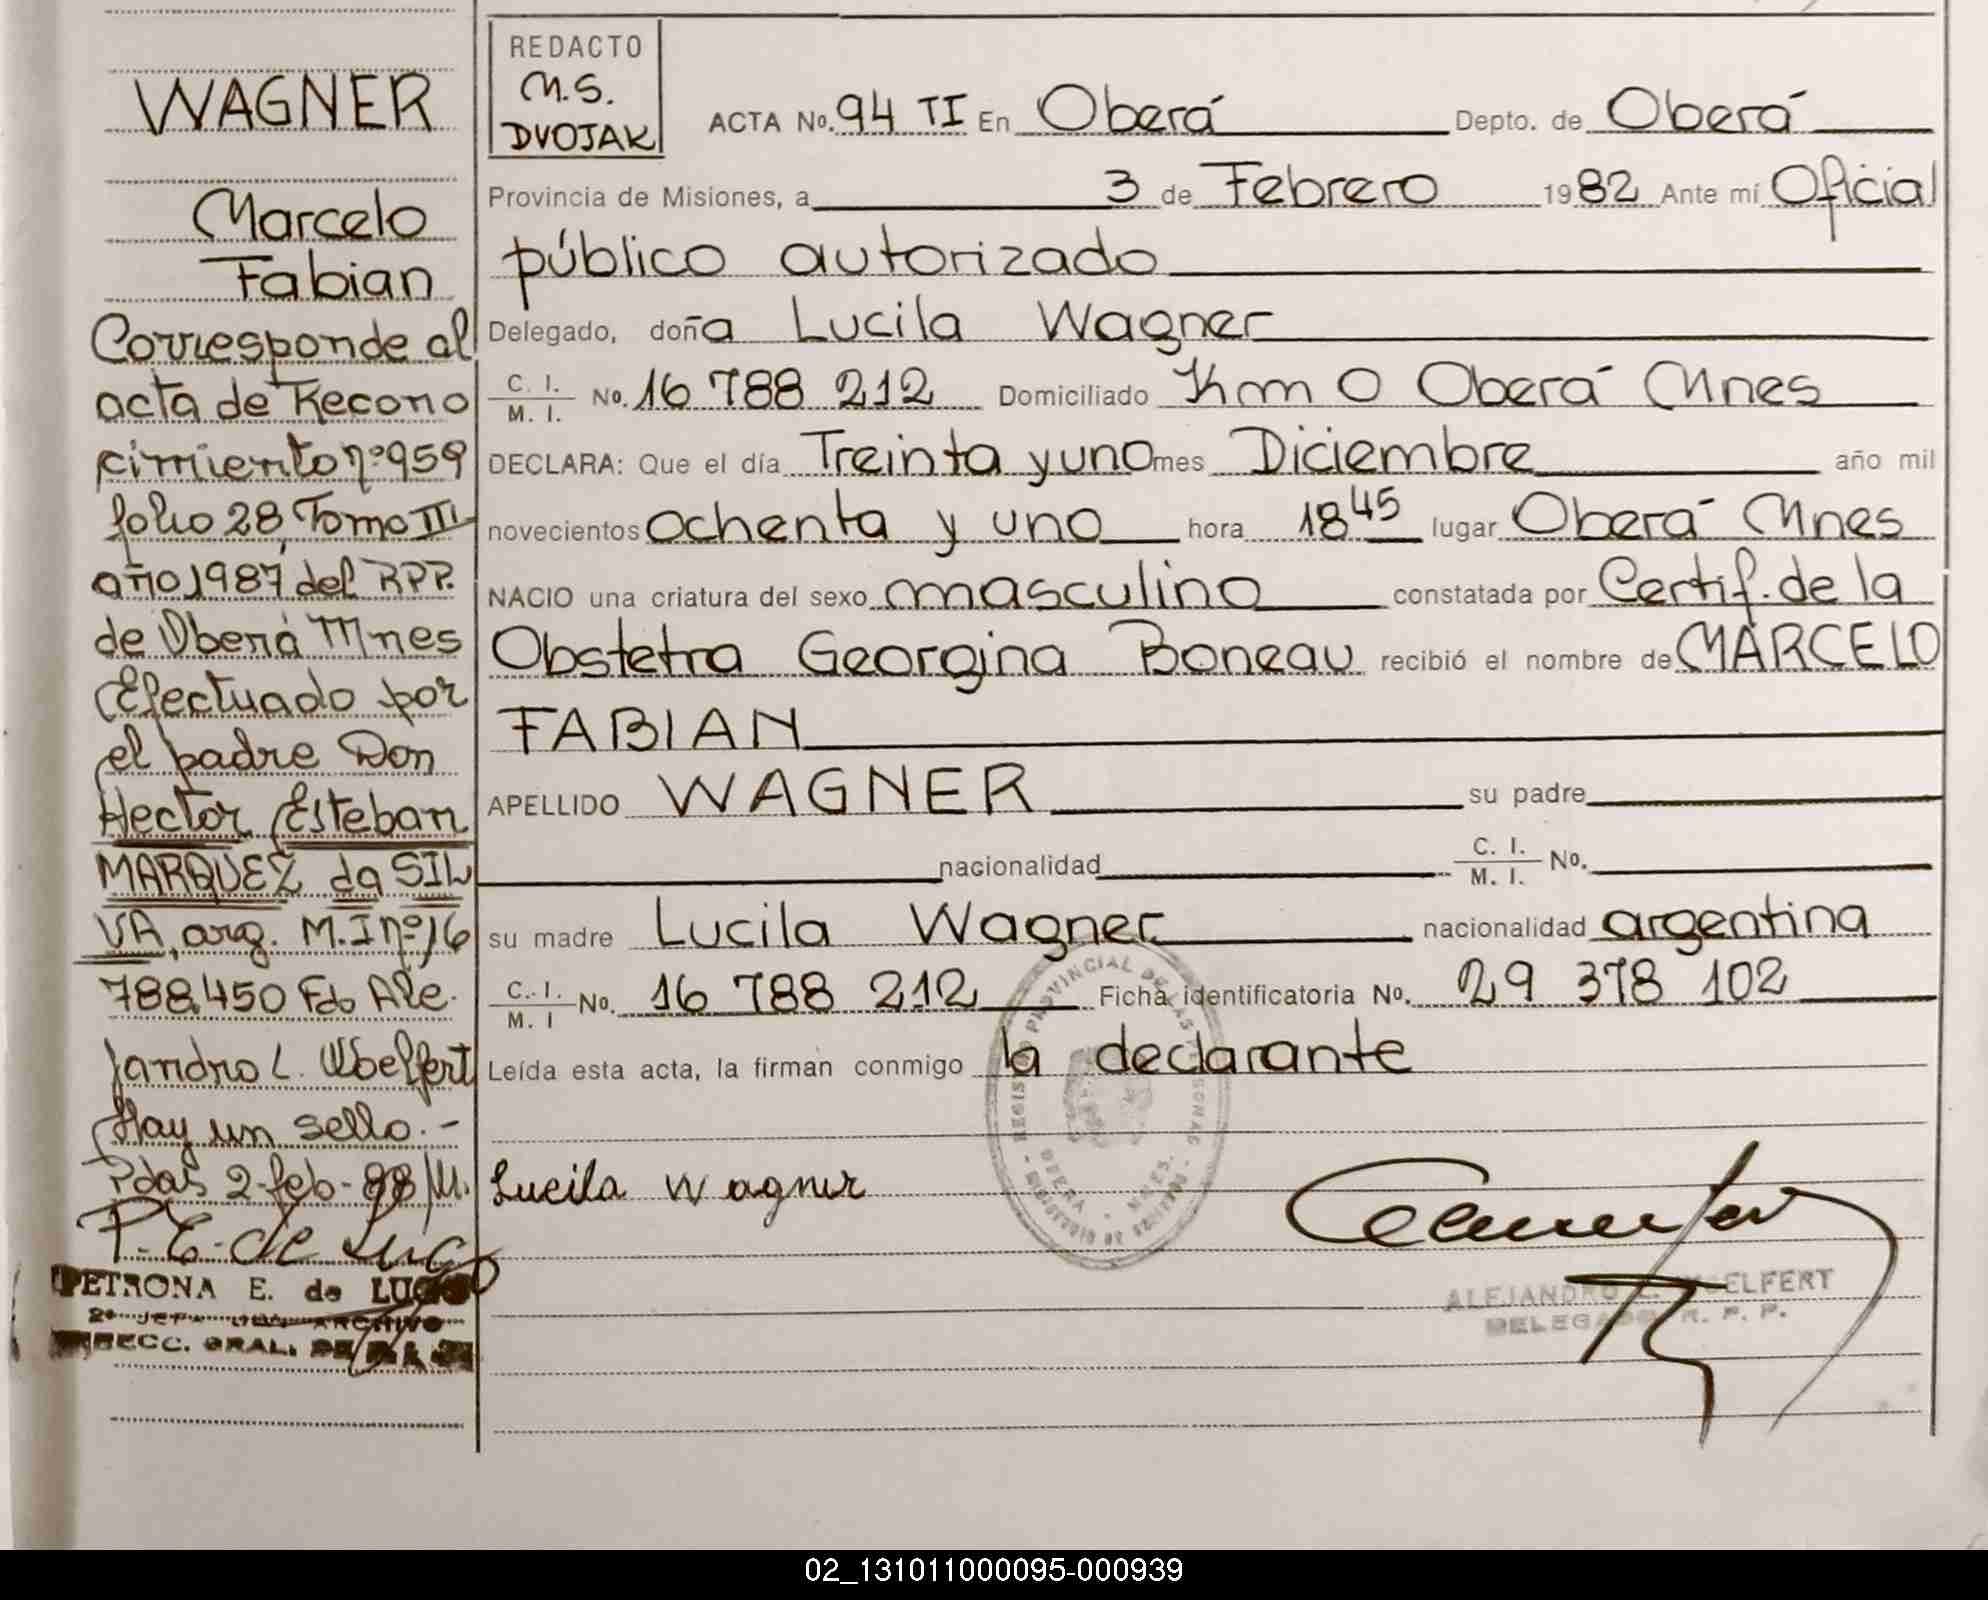 WAGNER
Marcelo
Fabian
Corresponde al
acta de Recono
cimiento nº 959
folio 28, Tomo III
año 1987, del RPP.
de Oberá Mnes
Efectuado por
el padre Don
Hector Esteban
MARQUEZ da SIL
VA, arg. M.I nº 16
788.450 Fdo Ale.
jandro L. Woelfert
Hay un sello.-
Pdas 2-feb-88
P. E. de Lugo
PETRONA E. de LUGO
ARCHIVO
GRAL.
REDACTO
M.S.
DVOJAK
ACTA No. 94 TI En Oberá Depto. de Oberá
Provincia de Misiones, a 3 de Febrero 1982 Ante mí Oficial
público autorizado
Delegado, doña Lucila Wagner
C. I. / M. I. No. 16 788 212 Domiciliado Km 0 Oberá Mnes
DECLARA: Que el día Treinta y uno mes Diciembre año mil
novecientos ochenta y uno hora 18 45 lugar Oberá Mnes
NACIO una criatura del sexo masculino constatada por Certif. de la
Obstetra Georgina Boneau recibió el nombre de MARCELO
FABIAN
APELLIDO WAGNER su padre
nacionalidad C. I. / M. I. No.
su madre Lucila Wagner nacionalidad argentina
C. I. / M. I No. 16 788 212 Ficha identificatoria No. 29 378 102
Leída esta acta, la firman conmigo la declarante
Lucila Wagner
ALEJANDRO L. WOELFERT
DELEGADO R. P. P.
02_131011000095-000939